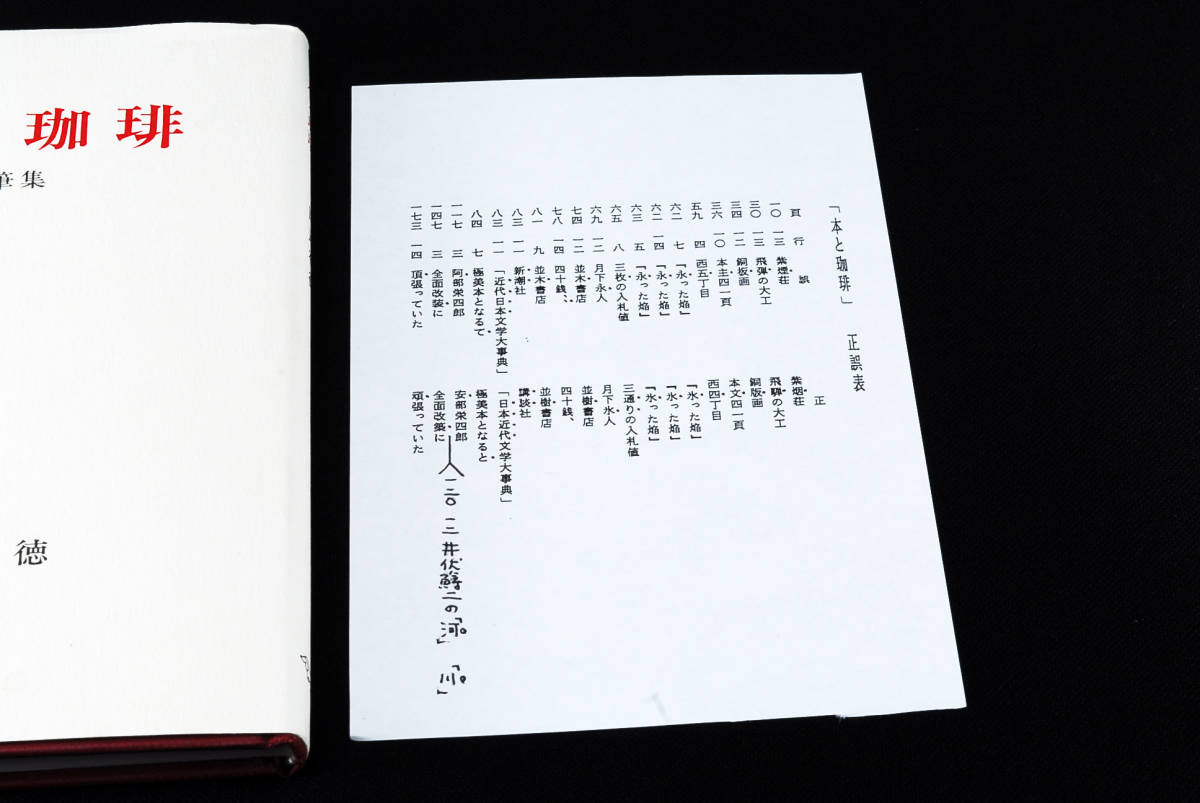 珈琲
筆集
徳
「本と珈琲」　正誤表
頁　行　誤　正
一〇　一三　紫煙荘　紫烟荘
三〇　一三　飛弾の大工　飛騨の大工
三四　一二　銅板画　銅版画
三六　一〇　本主四一頁　本文四一頁
五九　四　西五丁目　西四丁目
六二　七　「永った焰」　「氷った焰」
六二　一四　「永った焰」　「氷った焰」
六三　五　「永った焰」　「氷った焰」
六五　八　三枚の入札値　三通りの入札値
六九　一二　月下永人　月下氷人
七四　一二　並木書店　並樹書店
七八　一四　四十銭、、　四十銭、
八一　九　並木書店　並樹書店
八三　一一　新潮社　講談社
八三　一一　「近代日本文学大事典」　「日本近代文学大事典」
八四　七　極美本となるて　極美本となると
一一七　三　阿部栄四郎　安部栄四郎
一二〇　一三　井伏鱒二の「河」　「川」
一四七　三　全面改装に　全面改築に
一七三　一四　頂張っていた　頑張っていた